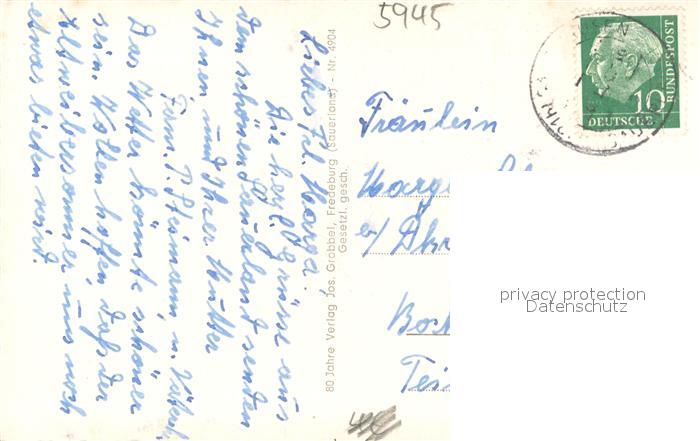 5945
Liebes Frl. Marga!
Die herzl. Grüße aus
dem schönen Sauerland senden
Ihnen und Ihrer Mutter
Fam. P. u.
Das Wetter könnte schöner
sein. Wollen hoffen, daß der
Altweibersommer uns noch
etwas bieten wird.
80 Jahre Verlag Jos. Grobbel, Fredeburg (Sauerland) - Nr. 4904
Gesetzl. gesch.
DEUTSCHE
BUNDESPOST
10
Fräulein
Marg
b/
Boch
privacy protection
Datenschutz